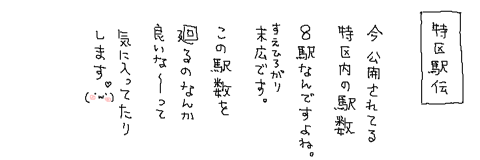 特区駅伝
今公開されてる
特区内の駅数
8駅なんですよね。
すえひろがり
末広です。
この駅数を
廻るのなんか
良いな〜って
気に入ってたり
します♡
(˙ω˙)